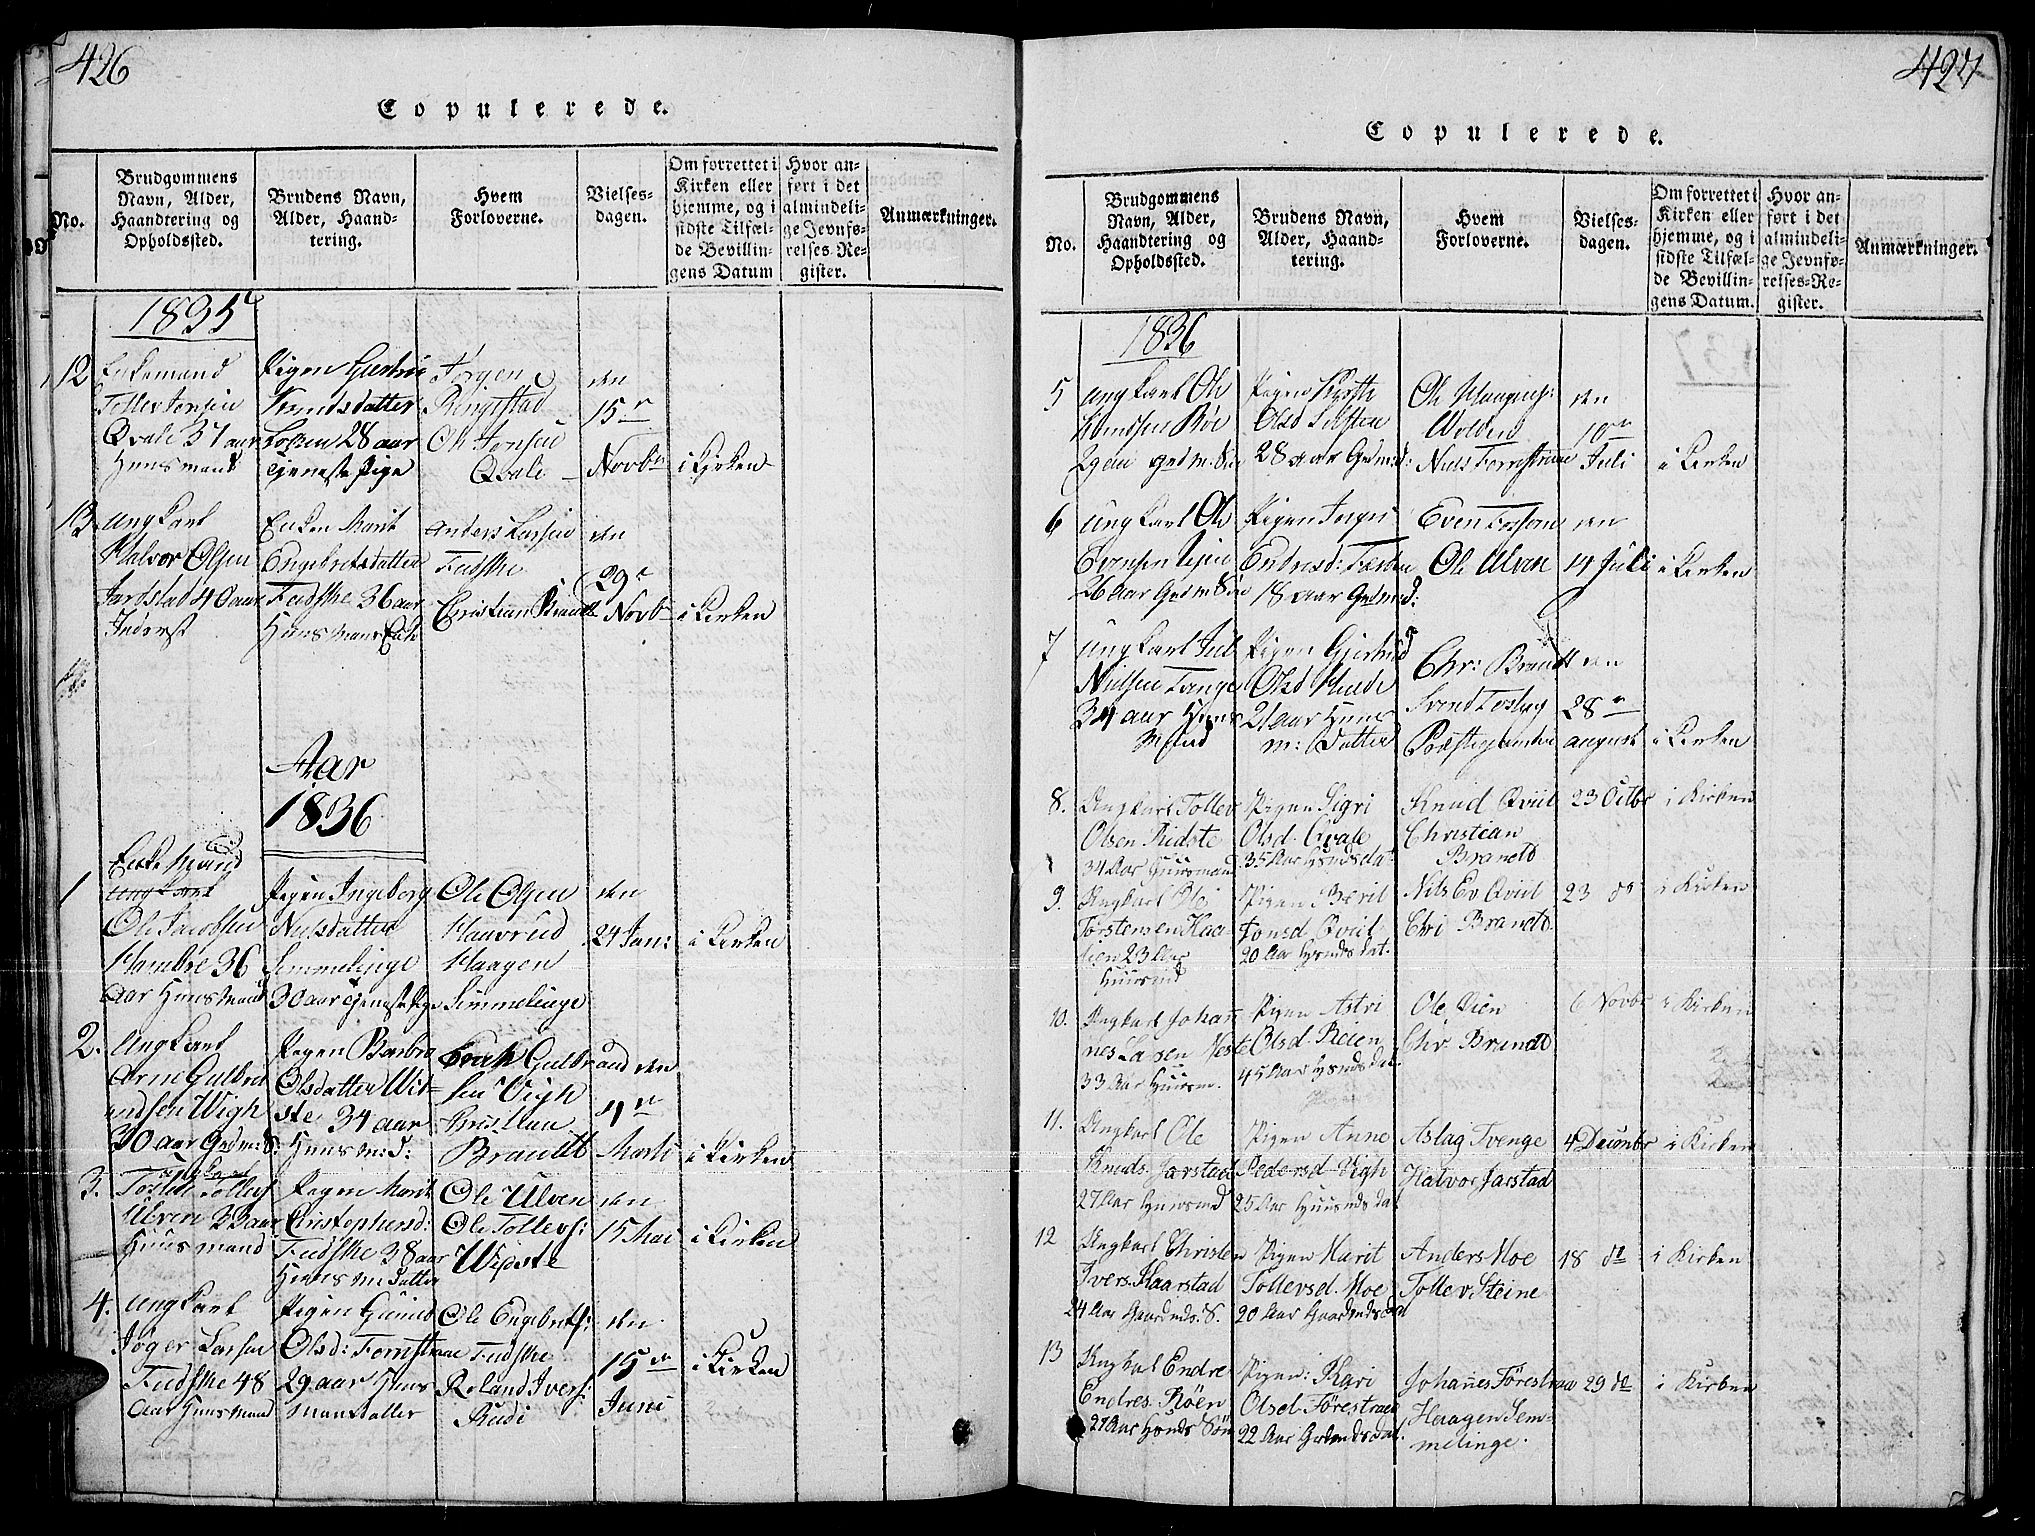 426
Copulerede.
No.
Brudgommens
Navn, Alder,
Haandtering og
Opholdssted.
Brudens Navn,
Alder, Haand-
tering.
Hvem
Forloverne.
Vielses-
dagen.
Om forrettet i
Kirken eller
hjemme, og i
sidste Tilfæl-
de Bevillin-
gens Datum
Hvor an-
ført i det
almindeli-
ge Jevnfø-
relses-Re-
gister.
Anmærkninger.
1835
12
Enkemand
Tollef Jonsen
Qvale 37 aar
Huusmand
Pigen
Knudsdatter
28 aar
tjeneste Pige
Jørgen
Ringestad
Ole Jonsen
Qvale
den
15de
Novbr
i Kirken
13
Ungkarl
Halvor Olsen
Jardstad 40 aar
Inderst
Enken Marit
Engebretsdatter
Fudske 36 aar
Huusmans Enke
Anders Larsen
Fudske
Christian Brandt
den
29de
Novbr
i Kirken
Aar
1836
1
Enkemand
Ungkarl
Ole Jacobsen
Hambre 36
Aar Huusmand
Pigen Ingeborg
Nielsdatter
Semmelinge
30 aar tjeneste Pige
Ole Olsen
Haavrud
Haagen
Semmelinge
den
24 Jan:
i Kirken
2.
Ungkarl
Arne Gulbra
ndsen Wigh
30 aar Grdm: S:
Pigen Barbra
Olsdatter Wid-
ste 34 aar
Huusm: D:
Gulbrand
sen Vigh
Christian
Brandt
den
4de
Marti
i Kirken
3.
Ungkarl
Tosten Tollefs
Ulven 33 aar
Huusmand
Pigen Marit
Cristophersd:
Fudske 38 aar
Huusm: Datter
Ole Ulven
Ole Tollevs:
Widste
den
15 Mai
i Kirken
4.
Ungkarl
Jøger Larsen
Fudske 48
Aar Huusmand
Pigen Gunild
Olsd: Forrestrae
29 aar Huus
mansdatter
Ole Engebrets:
Fudske
Roland Ivers:
Rudi
den
15de
Juni
i Kirken
427
Copulerede.
No.
Brudgommens
Navn, Alder,
Haandtering og
Opholdssted.
Brudens Navn,
Alder, Haand-
tering.
Hvem
Forloverne.
Vielses-
dagen.
Om forrettet i
Kirken eller
hjemme, og i
sidste Tilfæl-
de Bevillin-
gens Datum.
Hvor an-
ført i det
almindeli-
ge Jevnfø-
relses-Re-
gister.
Anmærkninger.
1836
5
Ungkarl Ole
Knudsen Røe
29 aar Grdm: Søn
Pigen
Olsd
28 aar Grdmd:
Ole
Wolden
Niels Forrestrae
den
10de
Juli
i Kirken
6
Ungkarl Ole
Evensen
26 Aar Grdm Søn
Pigen
Endresd:
18 aar Grdmd:
Even
Ole Ulven
den
14 Juli
i Kirken
7
Ungkarl Juul
Nielsen Tange
34 aar Huus
Mand
Pigen Gjertrud
Olsd Hende
21 aar Huus
m: Datter
Chr: Brandt
Svend Foslag
Præstegaarden
den
28de
august
i Kirken
8.
Ungkarl Tollev
Olsen Ridste
34 Aar Huusmand
Pigen Sigri
Olsd. Qvale
35 Aar Hsmdsdat
Knud Qviil
Christian
Brandt
23 Octbr
i Kirken
9.
Ungkarl Ole
Torstensen Haa-
gien 23 Aar
Huusmd
Pigen Berit
Jonsd. Qviil
20 Aar Hsmds dat.
Nils Ev Qviil
Chri Brandt
23 do
i Kirken
10.
Ungkarl Johan̄
nes Lasen Neste
33 Aar Huusm.
Pigen Astri
Olsd. Reien
45 Aar Hsmdsdat.
Ole Vien
Chr. Brandt
6 Novbr
i Kirken
11.
Ungkarl Ole
Knuds. Jarstad
27 Aar Huusmd
Pigen Anne
Pedersd. Vigh
25 Aar Huusmds dat
Aslag Tvenge
Halvor Jarstad
4 Decmbr
i Kirken
12
Ungkarl Christen
Ivers. Kaarstad
24 Aar Gaardmds. S.
Pigen Marit
Tollevsd. Moe
20 Aar Gaardmdsdat
Anders Moe
Tollev Steine
18 do
i Kirken
13
Ungkarl Endre
Endres. Røen
27 Aar Hsmds Søn
Pigen: Kari
Olsd. Førestrae
22 Aar Grdmdsdat.
Johan̄es Førestrae
Haagen Sem-
melinge.
29 do
i Kirken